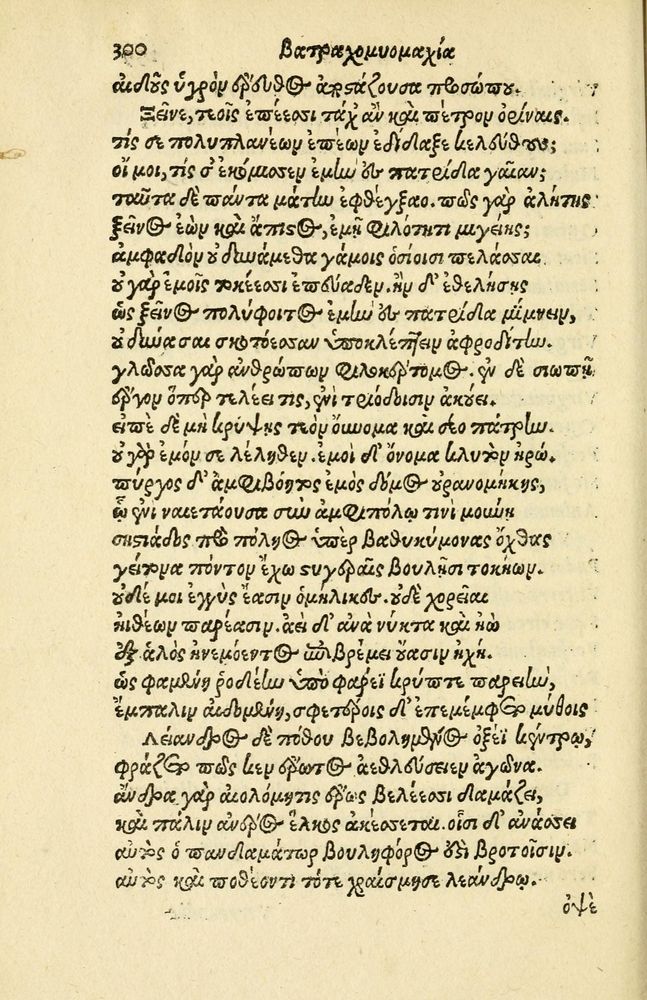 300 Βατραχομυομαχία
αἰδοῦς ὑγρὸν ἔρευθος ἀποστάζουσα προσώπου.
Ξεῖνε, τεοῖς ἐπέεσσι τάχ' ἂν καὶ πέτρον ὀρίναις.
τίς σε πολυπλανέων ἐπέων ἐδίδαξε κελεύθους;
οἴ μοι, τίς σ' ἐκόμισσεν ἐμὴν ἐς πατρίδα γαῖαν;
ταῦτα δὲ πάντα μάτην ἐφθέγξαο. πῶς γὰρ ἀλήτης
ξεῖνος ἐὼν καὶ ἄπιστος, ἐμῇ φιλότητι μιγείης;
ἀμφαδὸν οὐ δυνάμεθα γάμοις ὁσίοισι πελάσσαι
οὐ γὰρ ἐμοῖς τοκέεσσι ἐπεύαδεν. ἢν δ' ἐθελήσῃς
ὡς ξεῖνος πολύφοιτος ἐμὴν ἐς πατρίδα μίμνειν,
οὐ δύνασαι σκοτόεσσαν ὑποκλέπτειν ἀφροδίτην.
γλῶσσα γὰρ ἀνθρώπων φιλοκέρτομος. ἐν δὲ σιωπῇ
ἔργον ὅπερ τελέει τις, ἐνὶ τριόδοισιν ἀκούει.
εἰπὲ δὲ μὴ κρύψῃς τεὸν οὔνομα καὶ σέο πάτρην.
οὐ γὰρ ἐμόν σε λέληθεν. ἐμοὶ δ' ὄνομα κλυτὸν ἡρώ.
πύργος δ' ἀμφιβόητος ἐμὸς δόμος οὐρανομήκης,
ᾧ ἐνὶ ναιετάουσα σὺν ἀμφιπόλῳ τινὶ μούνῃ
σηστιάδος πρὸ πόληος ὑπὲρ βαθυκύμονας ὄχθας
γείτονα πόντον ἔχω στυγεραῖς βουλῇσι τοκήων.
οὐδέ μοι ἐγγὺς ἔασιν ὁμήλικες. οὐδὲ χορεῖαι
ἠϊθέων παρέασιν. ἀεὶ δ' ἀνὰ νύκτα καὶ ἠὼ
ἐξ ἁλὸς ἠνεμόεντος ἐπιβρέμει οὔασιν ἠχή.
ὡς φαμένη ῥοδέην ὑπὸ φάρεϊ κρύπτε παρειὴν,
ἔμπαλιν αἰδομένη, σφετέροις δ' ἐπεμέμφετο μύθοις
Λείανδρος δὲ πόθου βεβολημένος ὀξέϊ κέντρῳ,
φράζετο πῶς κεν ἔρωτος ἀεθλεύσειεν ἀγῶνα.
ἄνδρα γὰρ αἰολόμητις ἔρως βελέεσσι δαμάζει,
καὶ πάλιν ἀνέρος ἕλκος ἀκέσσεται. οἷσι δ' ἀνάσσει
αὐτὸς ὁ πανδαμάτωρ βουληφόρος ἐστὶ βροτοῖσιν.
αὐτὸς καὶ ποθέοντι τότε χραίσμησε λεάνδρῳ.
ὀψὲ